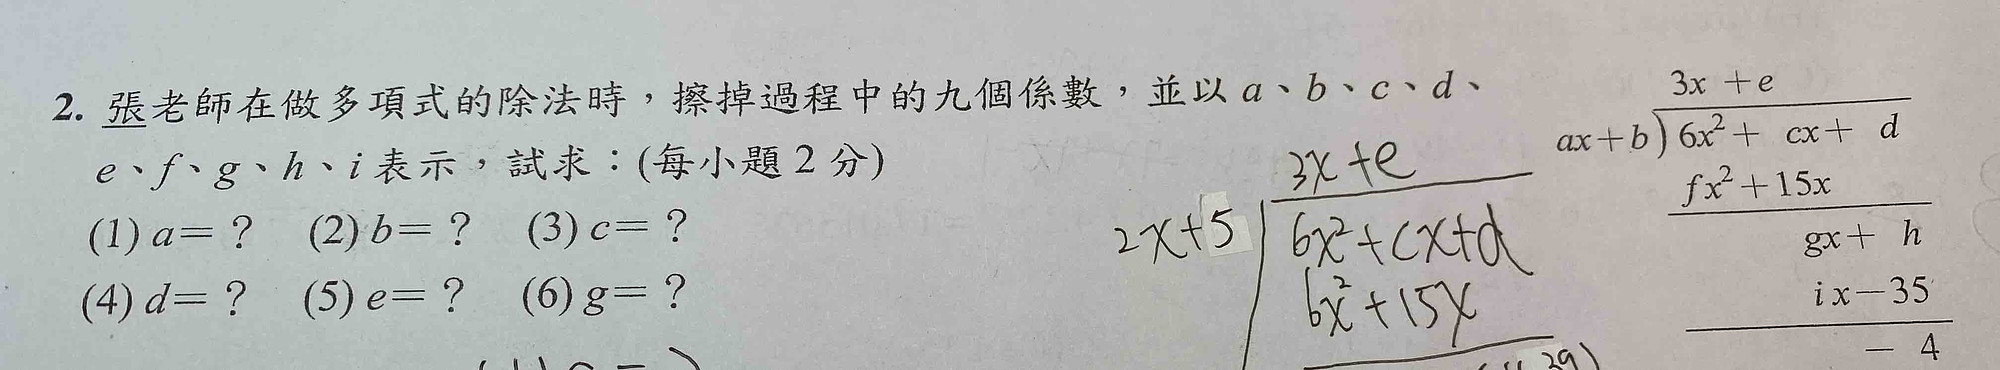 2. 張老師在做多項式的除法時，擦掉過程中的九個係數，並以 a、b、c、d、
e、f、g、h、i 表示，試求：(每小題 2 分)
(1) a= ？ (2) b= ？ (3) c= ？
(4) d= ？ (5) e= ？ (6) g= ？
3x+e
2x+5 6x²+cx+d
6x²+15x
3x +e
ax+b) 6x²+ cx+ d
fx²+15x
gx+ h
ix−35
− 4